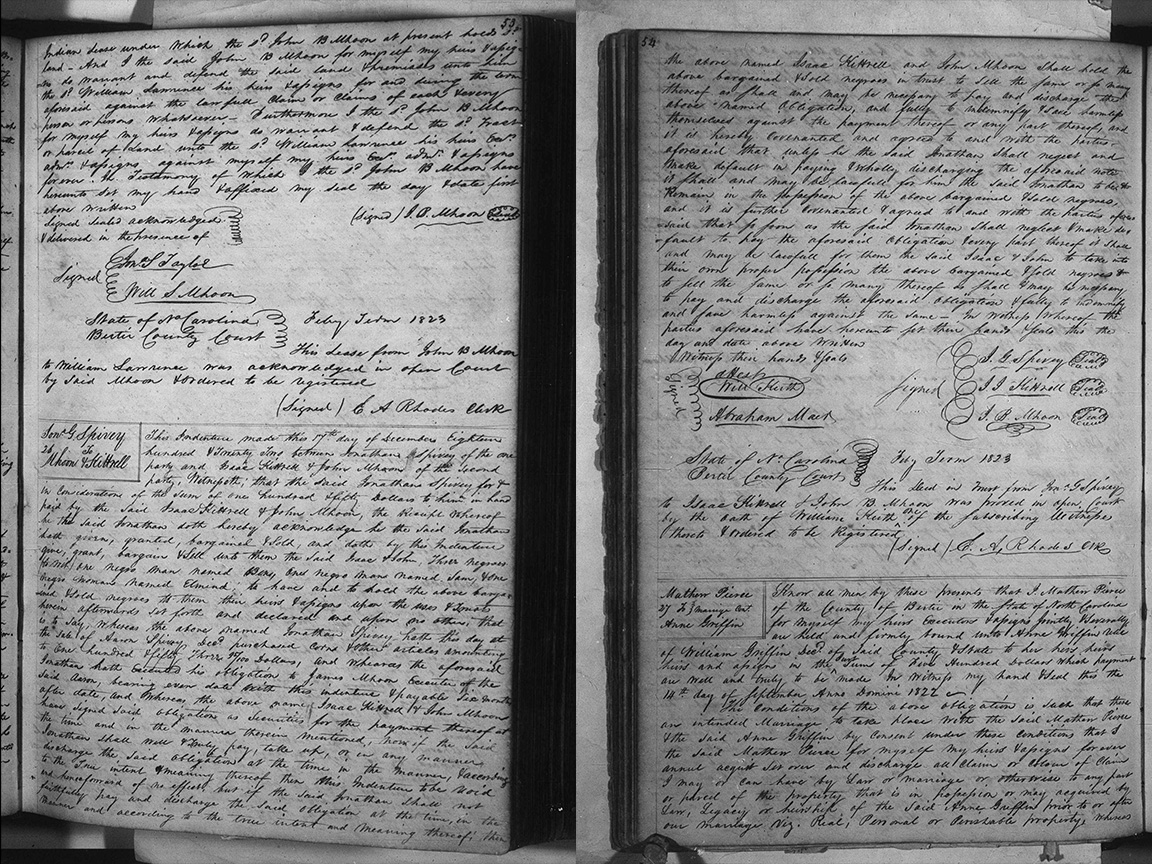 53
Indian Lease under which the sd John B Mhoon at present holds sd
land - And I the said John B Mhoon for myself my heirs & assig-
ns do warrant and defend the said land & premises unto him
the sd William Lawrence his heirs & assigns for and during the term
aforesaid against the lawfull Claim or Claims of each & every
person or persons whatsoever - Furthermore I the sd John B Mhoon
for myself my heirs & assigns do warrant & defend the sd Tract
or parcel of Land unto the sd William Lawrence his heirs Exrs
admrs & assigns against myself my heirs Exrs admrs & assigns
forever. In Testimony of which I the sd John B Mhoon have
hereunto set my hand & affixed my seal the day & date first
above written
Signed sealed acknowledged
& delivered in the presence of
(signed) J. B. Mhoon Seal
Signed
Jon. S Taylor
Will S Mhoon
State of No Carolina
Bertie County Court
Feby Term 1823
This Lease from John B Mhoon
to William Lawrence was acknowledged in open Court
by said Mhoon & ordered to be registered
(Signed) E A Rhodes Clerk
Jona. G. Spivey
26 To
Mhoon & Kittrell
This Indenture made this 17th day of December Eighteen
hundred & Twenty Two between Jonathan Spivey of the one
party and Isaac Kittrell & John Mhoon of the second
party, Witnesseth; that the said Jonathan Spivey for &
in Consideration of the Sum of one hundred & fifty Dollars to him in hand
paid by the said Isaac Kittrell & John Mhoon, the Receipt whereof
he the said Jonathan doth hereby acknowledge he the said Jonathan
hath given, granted, bargained & Sold, and doth by this Indenture
give, grant, bargain & Sell unto them the said Isaac & John, Three negroes
(to wit) one negro man named Ben, one negro man named Sam, & one
negro woman named to have and to hold the above bargai-
ned & Sold negroes to them their heirs & assigns upon the uses & Trusts
herein afterwards set forth and declared and upon no others, that
is to say, whereas the above named Jonathan Spivey hath this day at
the Sale of Aaron Spivey, Decd purchased Corn & other articles amounting
to One hundred & fifty Three Dollars, and Whereas the aforesaid
Jonathan hath Executed his obligation to James Mhoon Executor of the
said Aaron bearing even date with this indenture & payable Six months
after date, and Whereas the above named Isaac Kittrell & John Mhoon
have signed said obligation as Securities for the payment thereof at
the time and in the manner therein mentioned, now if the said
Jonathan shall well & truly pay, take up or in any manner
discharge the said obligation at the time in the manner, & according
to the true intent & meaning thereof then this Indenture to be void
and henceforward of no effect, but if the said Jonathan shall not
faithfully pay and discharge the said obligation at the time, in the
manner and according to the true intent and meaning thereof, then
54
the above named Isaac Kittrell and John Mhoon Shall hold the
above bargained & Sold negroes in trust to Sell the same or so many
thereof as shall and may be necessary to pay and discharge the
above named Obligation, and fully to indemnify & Save harmless
themselves against the payment thereof or any part thereof, and
it is hereby Covenanted and agreed to and with the parties
aforesaid that unless he the said Jonathan shall neglect and
make default in paying & wholly discharging the aforesaid note
it shall and may be lawfull for him the said Jonathan to be &
Remain in the possession of the above bargained & Sold negroes,
and it is further Covenanted & agreed to and with the parties afore-
said that so soon as the said Jonathan shall neglect & make de-
fault to pay the aforesaid Obligation & every part thereof it shall
and may be lawfull for them the said Isaac & John to take into
their own proper possession the above bargained & sold negroes &
to sell the same or so many thereof as shall & may be necessary
to pay and discharge the aforesaid Obligation & fully to indemnify
and save harmless against the same - In witness whereof the
parties aforesaid have hereunto set their hands & seals this the
day and date above Written
Witness their hands & seals
attest
Signed
Will Keith
Abraham
Signed
J. G. Spivey Seal
J. J Kittrell Seal
J. B. Mhoon Seal
State of No. Carolina
Bertie County Court
Feby Term 1823
This Deed in Trust from Jona. G Spivey
to Isaac Kittrell & John B. Mhoon was proved in open Court
by the oath of William Keith one of the subscribing Witnesses
thereto & ordered to be Registered
(Signed) E. A. Rhodes Clk
Mathew Pierce
27 To Marriage Cont
Anne Griffin
Know all men by these presents that I Mathew Pierce
of the County of Bertie in the State of North Carolina
for myself my heirs Executors & assigns jointly & severally
am held and firmly bound unto Anne Griffin
of William Griffin Decd. of said County & State to her heirs
heirs and assigns in the Just sum of Five Hundred Dollars which payment
are well and truly to be made In Witness my hand & seal this the
14th day of September Anno Domini 1822
The Conditions of the above obligation is such that there
an intended Marriage to take place with the said Mathew Pierce
& the said Anne Griffin by Consent under these Conditions that I
the said Mathew Pierce for myself my heirs & assigns forever
annul acquit set over and discharge all Claim or Colour of Claim
I may or can have by Law or marriage or otherwise to any part
or parcel of the property that is in possession or may acquired by
Law, Legacy or heirship of the said Anne Griffin prior to or after
our marriage Viz. Real, Personal or Perishable property, whereas